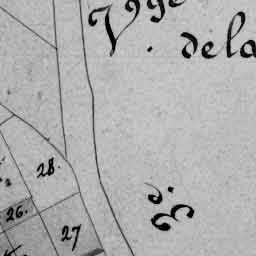 V.gge
de la
28.
26.
27